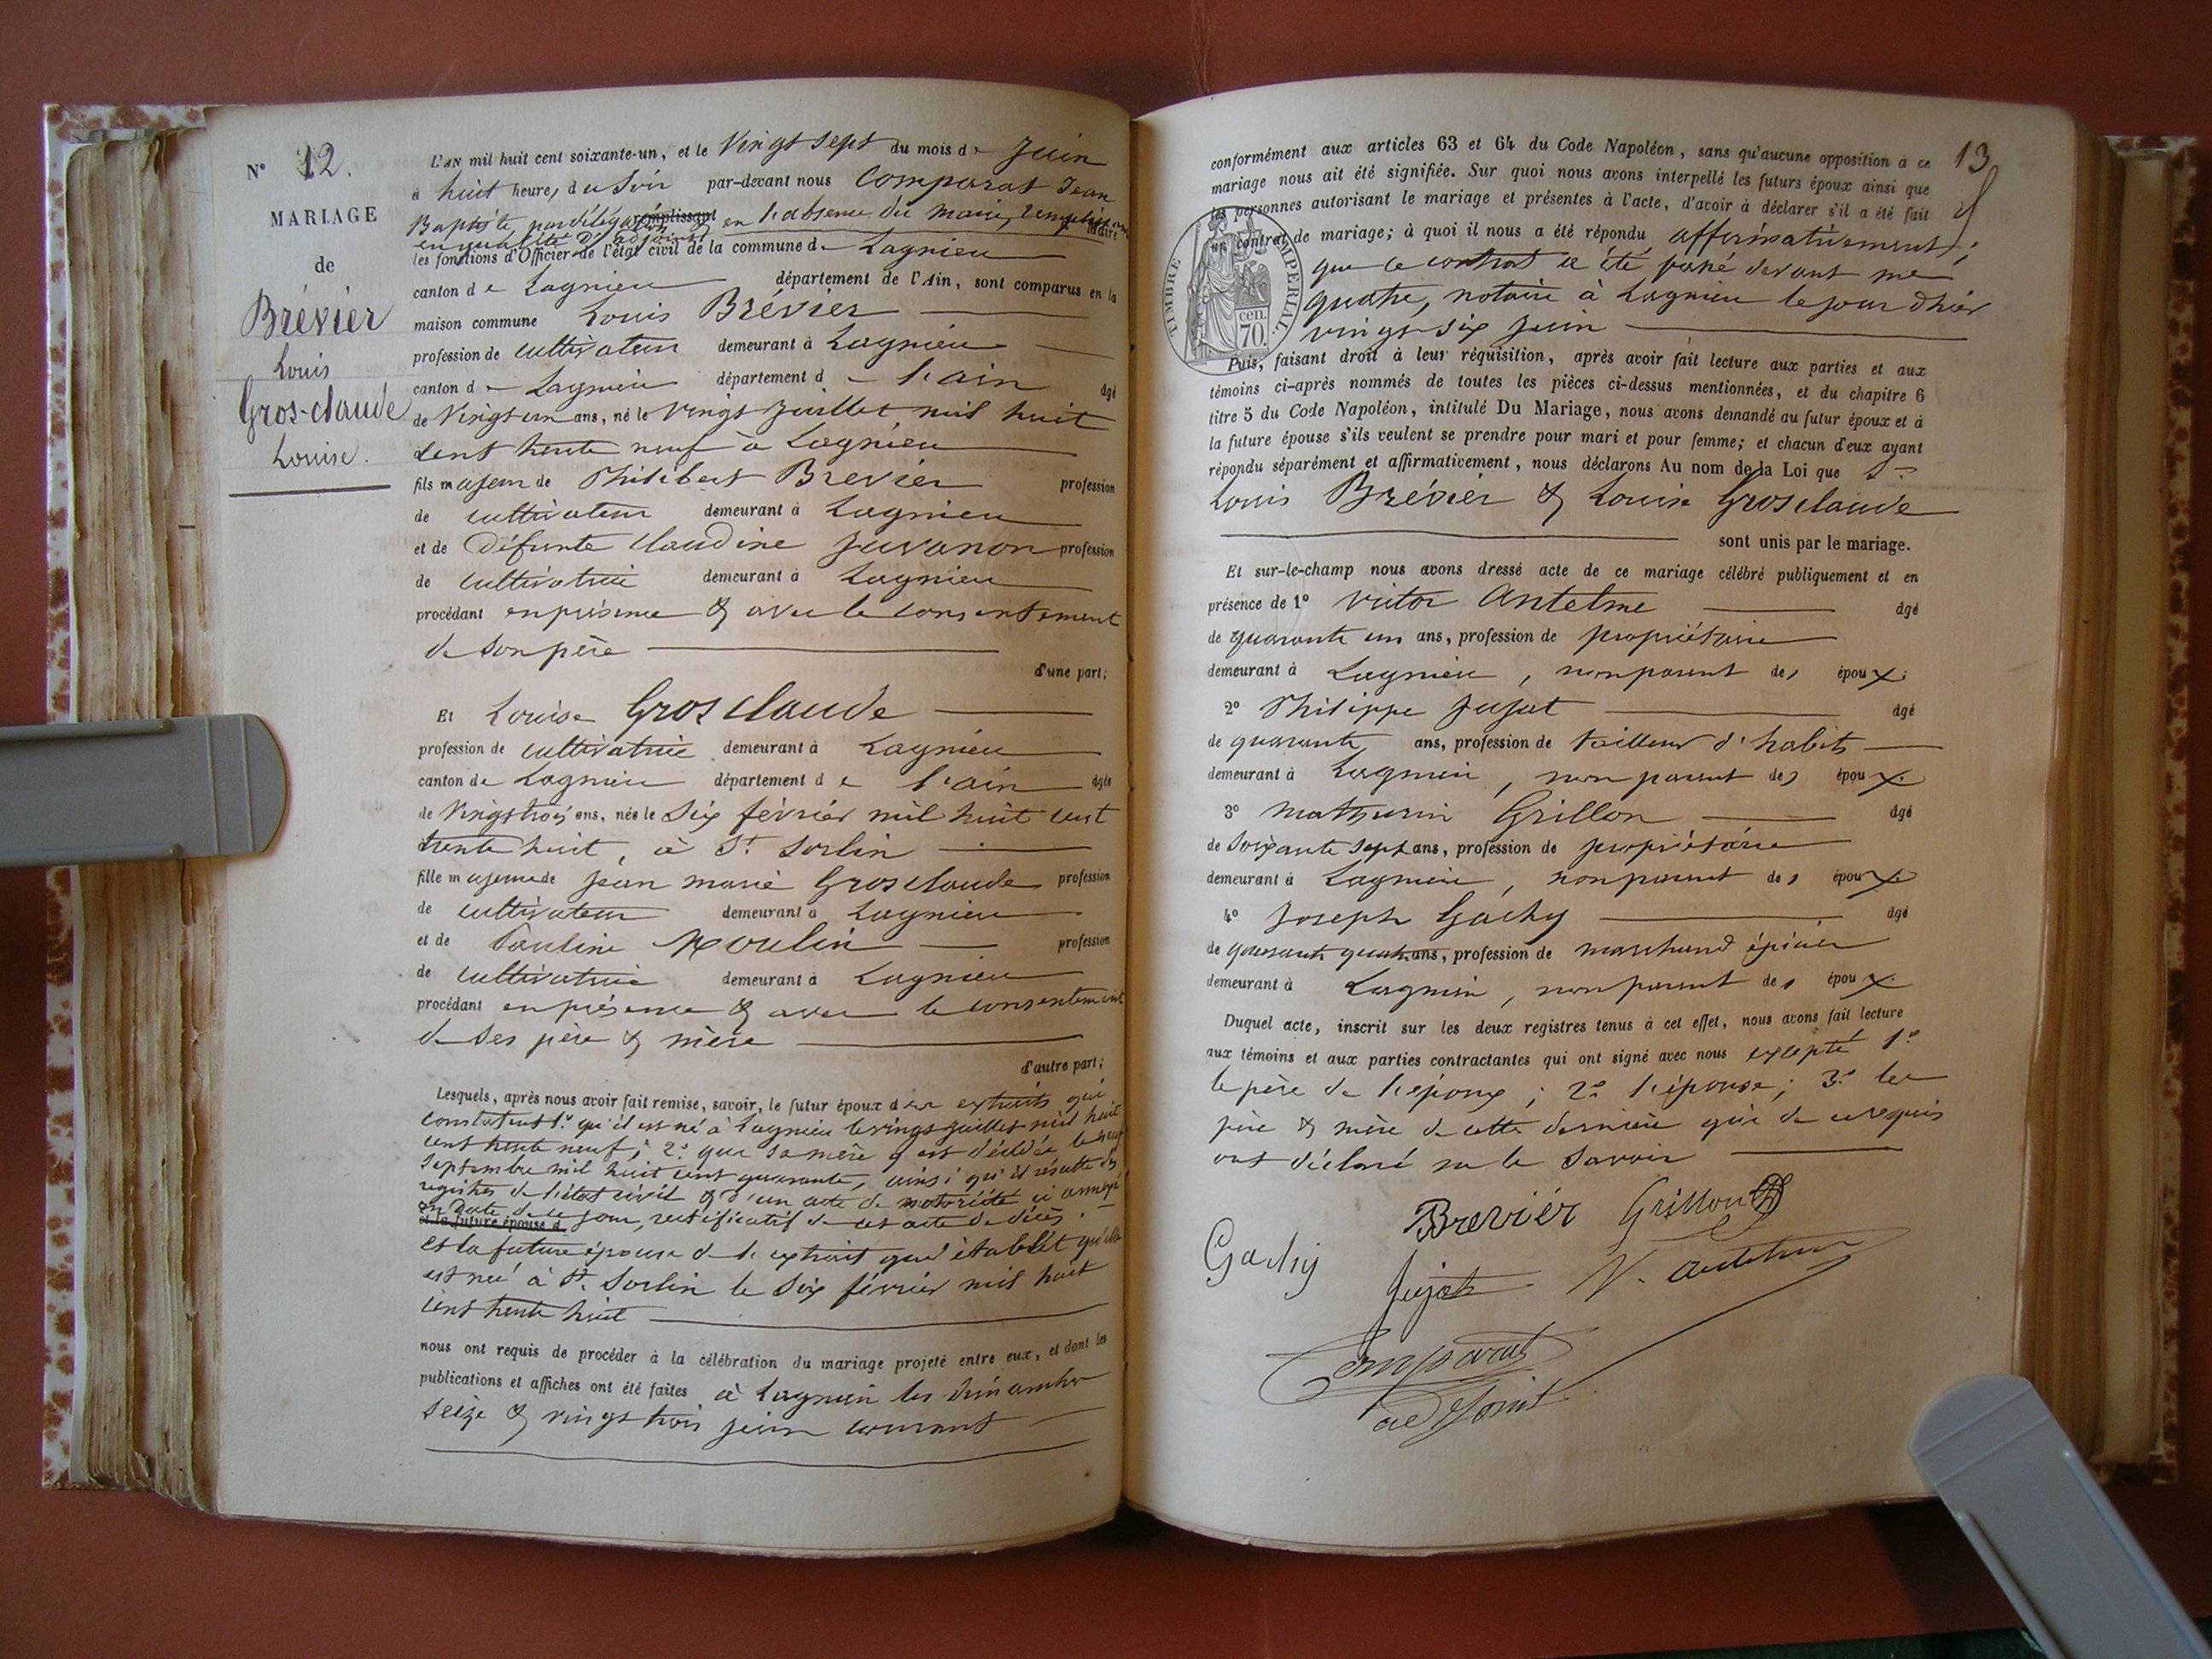 N° 12.
MARIAGE
de
Brévier
Louis
Gros-claude
Louise.
L'AN mil huit cent soixante-un, et le Vingt sept du mois de Juin
à huit heures du Soir par-devant nous Comparat Jean
Baptiste, par délégation remplissant en l'absence du Maire, remplissant
en qualité d'adjoint
les fonctions d'Officier de l'état civil de la commune de Lagnieu
canton de Lagnieu département de l'Ain, sont comparus en la
maison commune Louis Brévier
profession de cultivateur demeurant à Lagnieu
canton de Lagnieu département de l'ain âgé
de Vingt un ans, né le vingt Juillet mil huit
cent trente neuf à Lagnieu
fils majeur de Philibert Brevier profession
de cultivateur demeurant à Lagnieu
et de Défunte Claudine Juvanon profession
de cultivatrice demeurant à Lagnieu
procédant en présence & avec le consentement
de son père
d'une part;
Et Louise Grosclaude
profession de cultivatrice demeurant à Lagnieu
canton de Lagnieu département de l'ain âgée
de Vingt trois ans, née le Six février mil huit cent
trente huit, à St. Sorlin
fille majeure de Jean marie Grosclaude profession
de cultivateur demeurant à Lagnieu
et de Pauline Moulin profession
de cultivatrice demeurant à Lagnieu
procédant en présence & avec le consentement
de ses père & mère
d'autre part;
Lesquels, après nous avoir fait remise, savoir, le futur époux des extraits qui
constatent 1° qu'il est né à Lagnieu le vingt juillet mil huit
cent trente neuf; 2° que sa mère y est décédée le neuf
septembre mil huit cent quarante, ainsi qu'il résulte des
registres de l'état civil & d'un acte de notoriété ci annexé
en date de ce jour, rectificatif de cet acte de décès.
et la future épouse d
et la future épouse de l'extrait qui établit qu'elle
est née à St. Sorlin le six février mil huit
cent trente huit
nous ont requis de procéder à la célébration du mariage projeté entre eux, et dont les
publications et affiches ont été faites à Lagnieu les dimanches
seize & vingt trois juin courant
13
conformément aux articles 63 et 64 du Code Napoléon, sans qu'aucune opposition à ce
mariage nous ait été signifiée. Sur quoi nous avons interpellé les futurs époux ainsi que
les personnes autorisant le mariage et présentes à l'acte, d'avoir à déclarer s'il a été fait
un contrat de mariage; à quoi il nous a été répondu affirmativement;
que ce contrat a été passé devant me
quatre, notaire à Lagnieu le jour d'hier
vingt-six juin
TIMBRE IMPERIAL.
cen.
70.
Puis, faisant droit à leur réquisition, après avoir fait lecture aux parties et aux
témoins ci-après nommés de toutes les pièces ci-dessus mentionnées, et du chapitre 6
titre 5 du Code Napoléon, intitulé Du Mariage, nous avons demandé au futur époux et à
la future épouse s'ils veulent se prendre pour mari et pour femme; et chacun d'eux ayant
répondu séparément et affirmativement, nous déclarons Au nom de la Loi que
Louis Brévier & Louise Grosclaude
sont unis par le mariage.
Et sur-le-champ nous avons dressé acte de ce mariage célébré publiquement et en
présence de 1° Victor Antelme âgé
de quarante un ans, profession de propriétaire
demeurant à Lagnieu, non parent des époux
2° Philippe Jujat âgé
de quarante ans, profession de tailleur d'habits
demeurant à Lagnieu, non parent des époux
3° Mathurin Grillon âgé
de Soixante sept ans, profession de propriétaire
demeurant à Lagnieu, non parent des époux
4° Joseph Gachy âgé
de quarante quatre ans, profession de marchand épicier
demeurant à Lagnieu, non parent des époux
Duquel acte, inscrit sur les deux registres tenus à cet effet, nous avons fait lecture
aux témoins et aux parties contractantes qui ont signé avec nous excepté 1°
le père de l'époux; 2° l'épouse; 3° les
père & mère de cette dernière qui de ce requis
ont déclaré ne le savoir
Brevier Grillon
Gachy
Jujat V. antelme
Comparat
adjoint